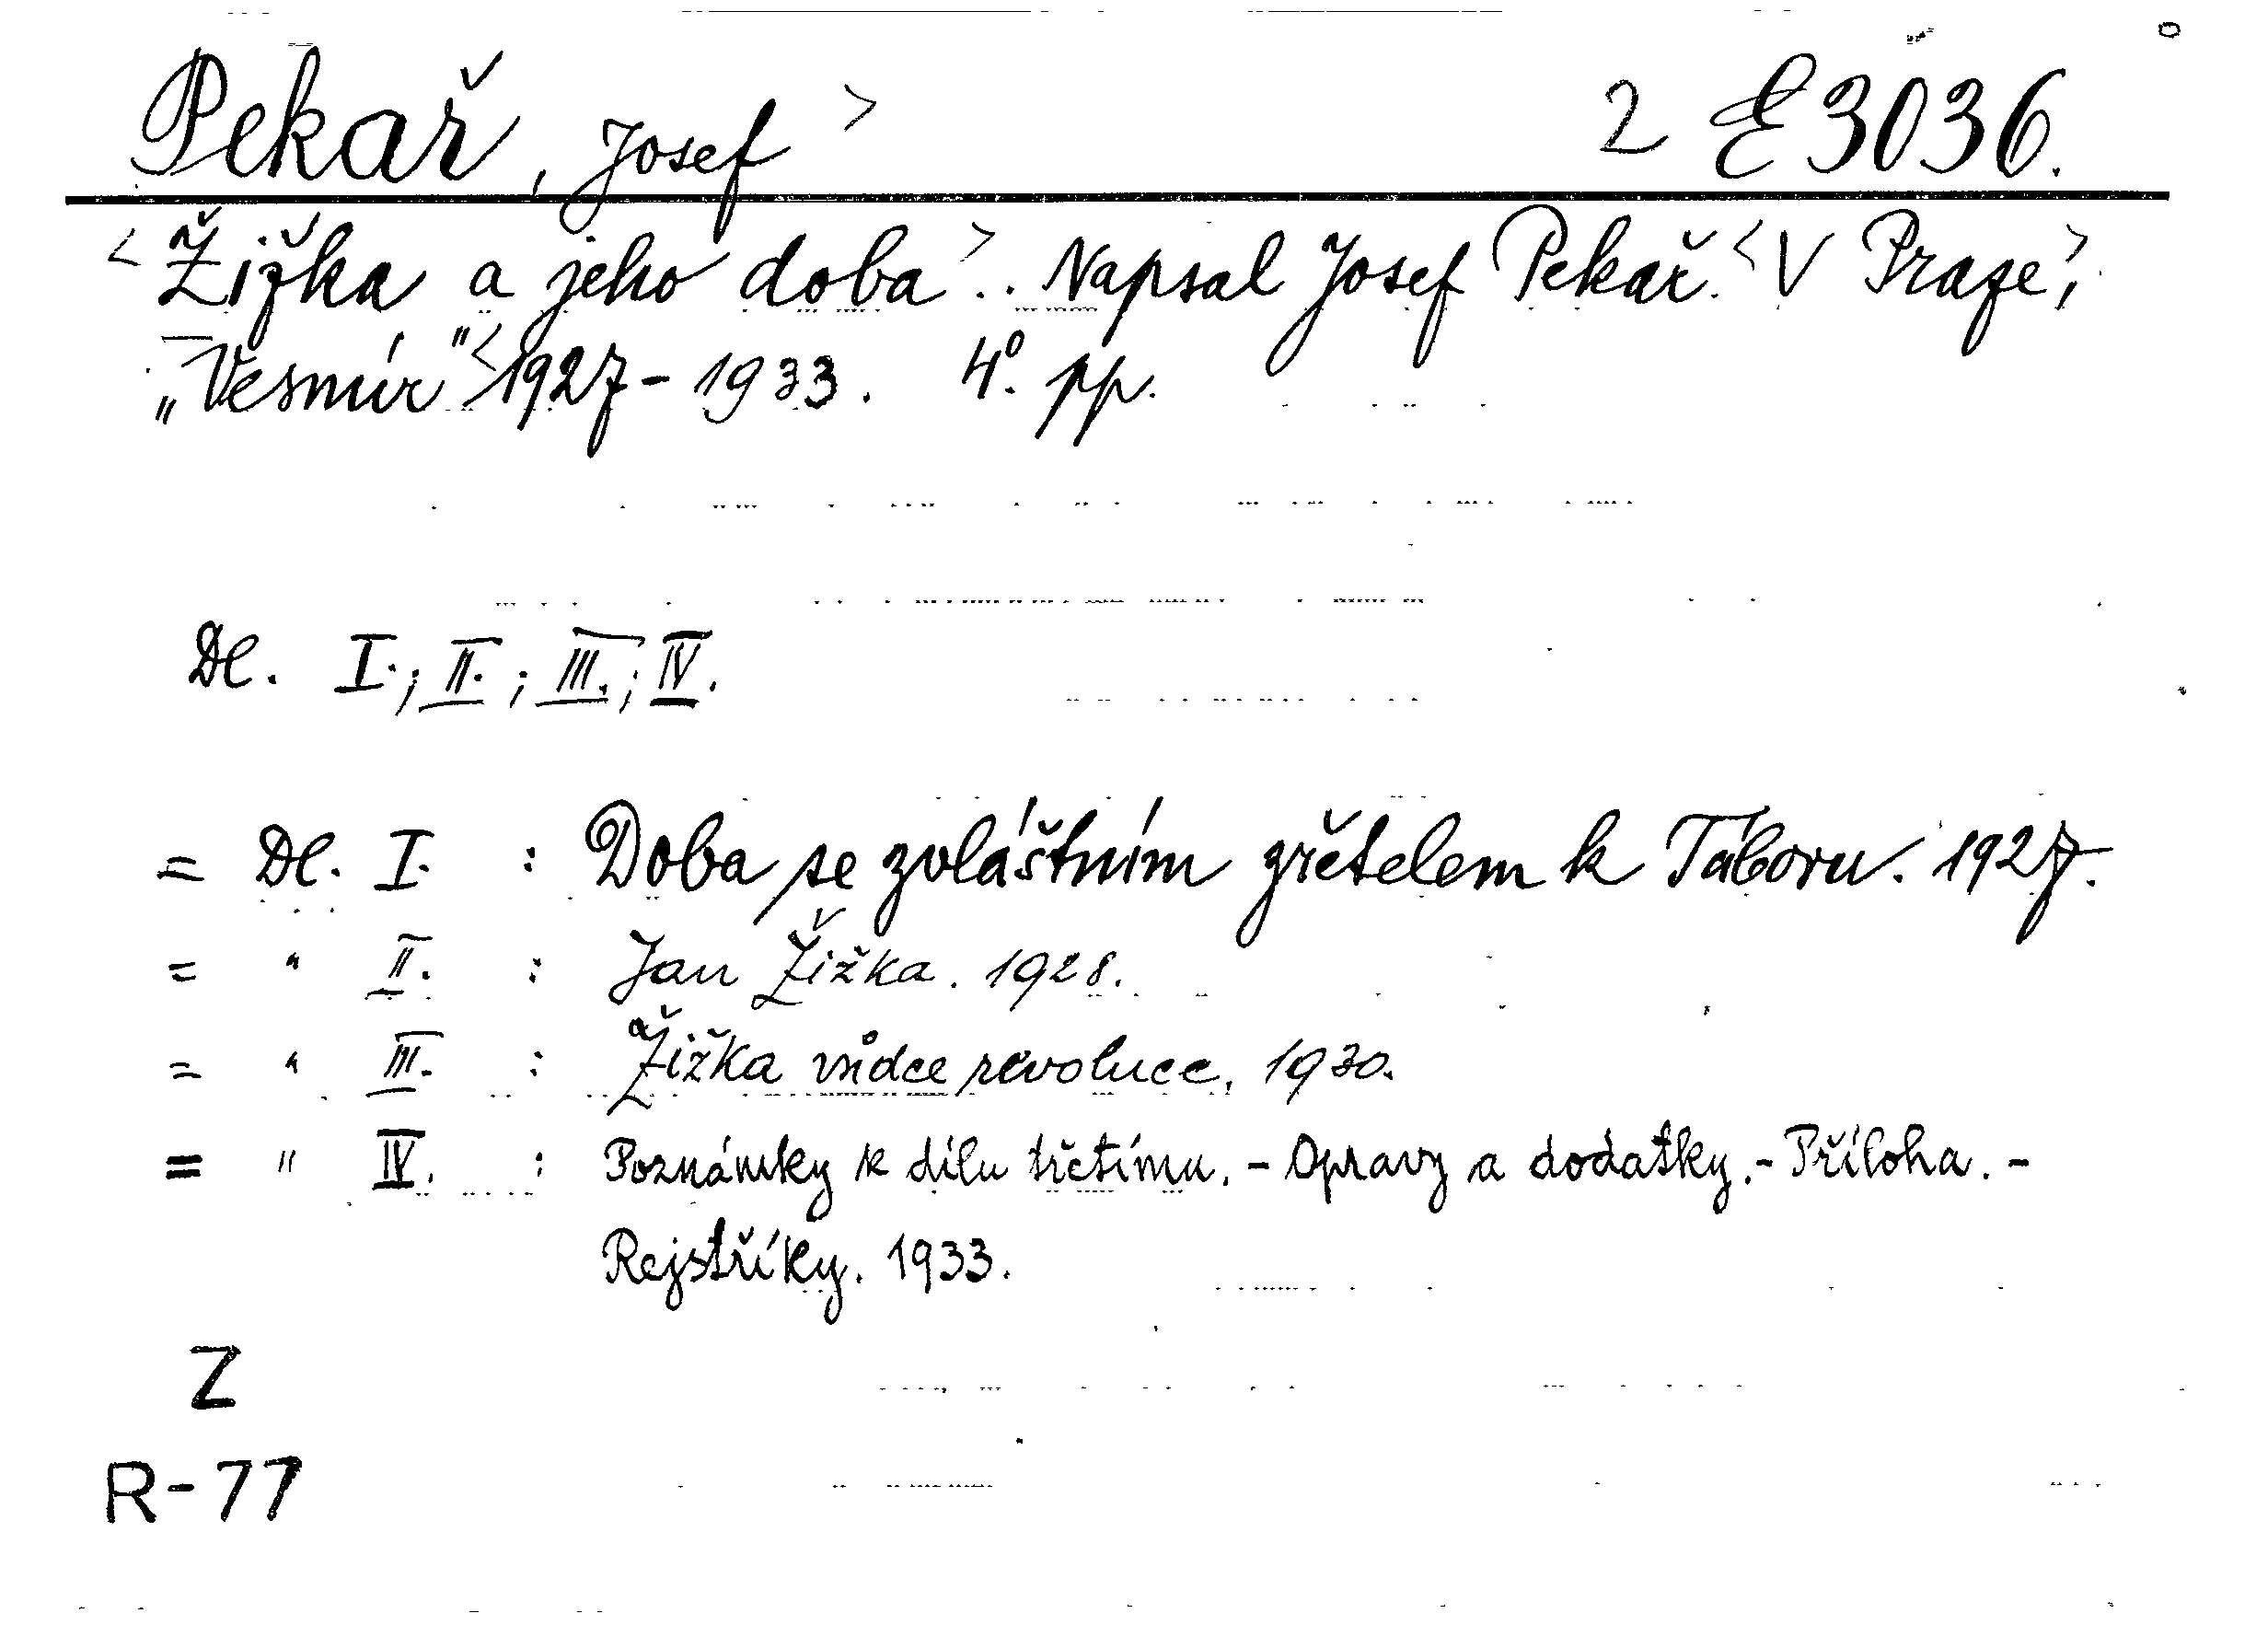 Pekař, Josef > 2 E 3036.
<Žižka a jeho doba>.. Napsal Josef Pekař. <V Praze>,
„Vesmír"< 1927-1933. 4°. pp.
Dl. I.; II.; III.; IV.
= Dl. I. : Doba se zvláštním zřetelem k Táboru. 1927.
= " II. : Jan Žižka. 1928.
= " III. : Žižka vůdce revoluce, 1930.
= " IV. : Poznámky k dílu třetímu. - Opravy a dodatky. - Příloha. -
Rejstříky. 1933.
Z
R-77